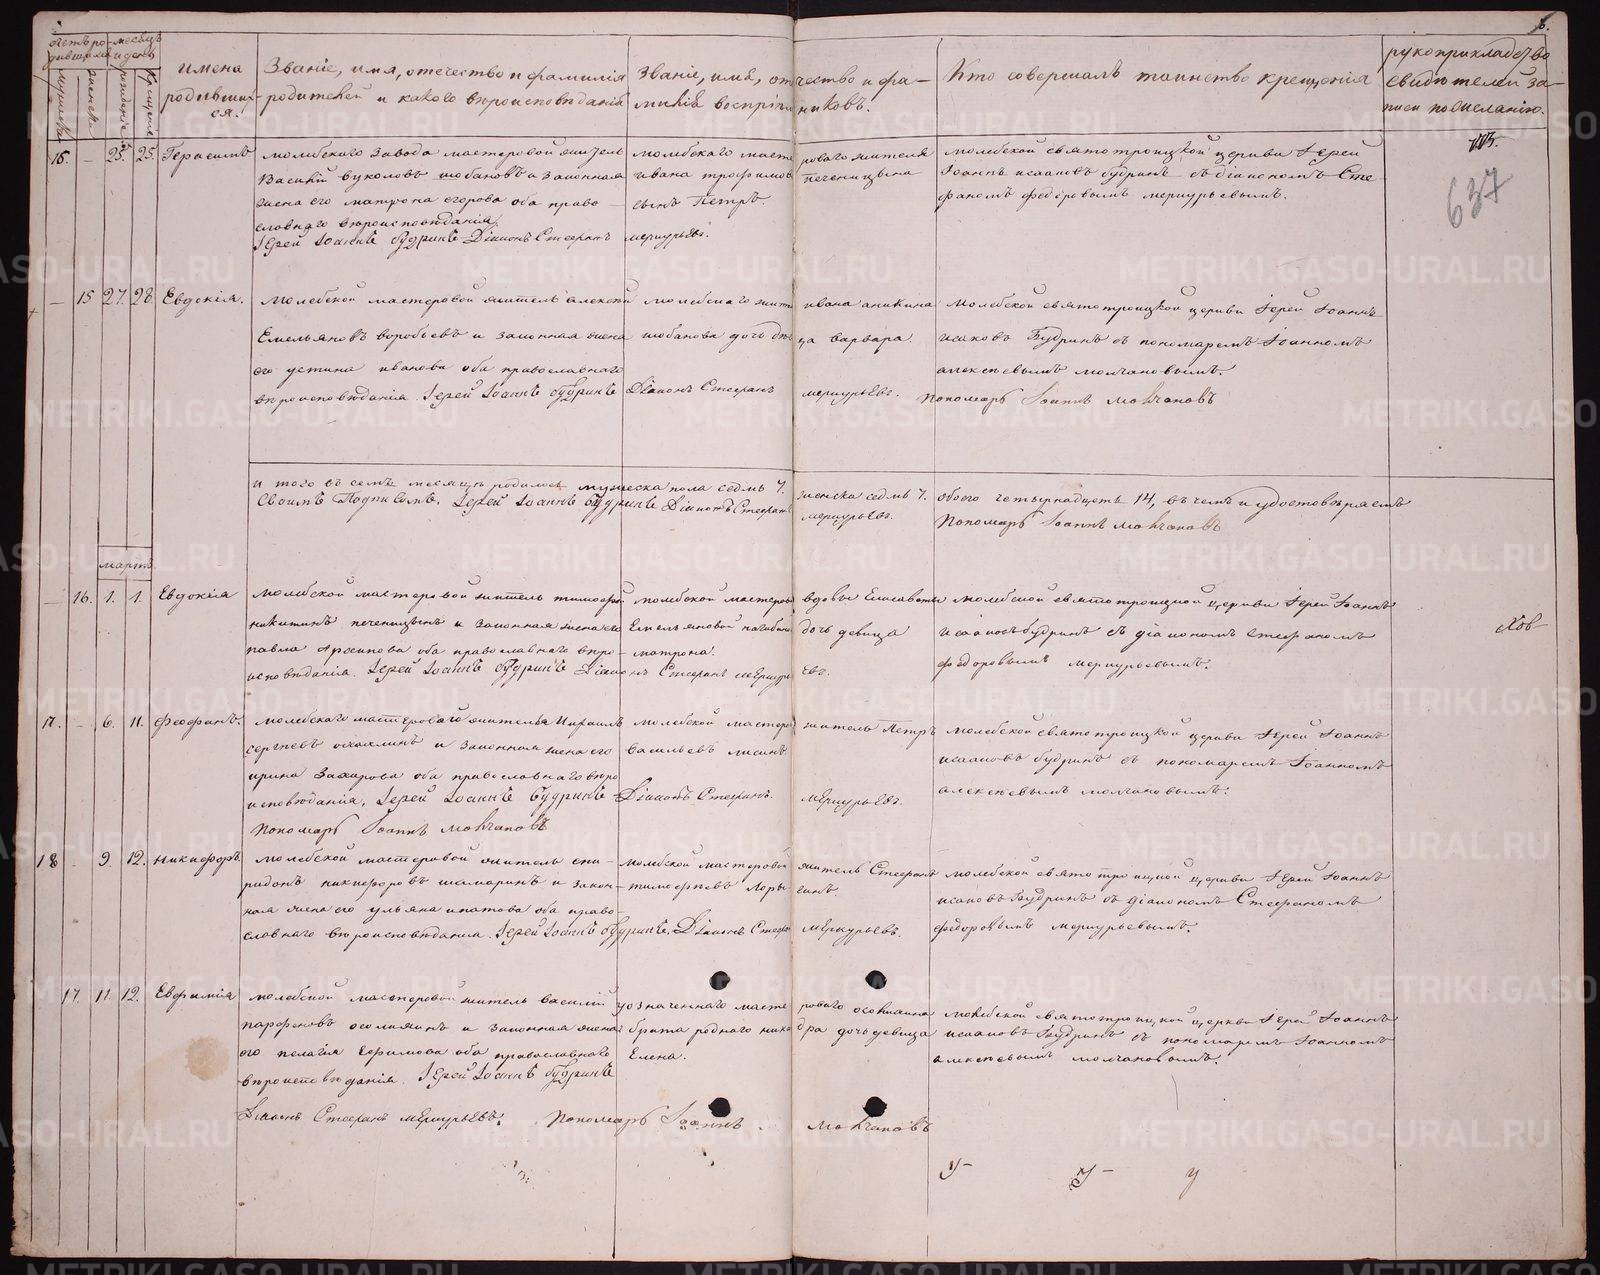 имена родившихся.
Званіе, имя, отечество и фамилія родителей и какого вѣроисповѣданія
Званіе, имя, отчество и фамилія воспріемниковъ.
Кто совершалъ таинство крещенія
рукоприкладство свидѣтелей записи по желанію.
16. — 25. 25. Герасимъ
молебскаго завода мастеровой житель
Василій вуколовъ шобановъ и законная
жена его матрона егорова оба право-
славнаго вѣроисповѣданія
Іерей Іоаннъ будринъ Діаконъ Стефанъ меркурьевъ.
молебскаго мастероваго жителя
ивана трофимова печеницына
сынъ Петръ.
молебской святотроицкой церкви Іерей
Іоаннъ исааковъ будринъ съ діакономъ Сте-
фаномъ федоровымъ меркурьевымъ.
637
— 15 27. 28. Евдокія.
молебской мастеровой житель алексей
Емельяновъ воробьевъ и законная жена
его устина иванова оба православнаго
вѣроисповѣданія. Іерей Іоаннъ будринъ Діаконъ Стефанъ меркурьевъ.
ивана аникина
шобанова дочь девица варвара.
молебской святотроицкой церкви Іерей Іоаннъ
исаковъ Будринъ съ пономаремъ Іоанномъ
алексеевымъ молчановымъ.
Пономарь Іоаннъ молчановъ
и того въ семъ месяцѣ родилось мужеска пола седмь 7. женска седмь 7. обоего четырнадцеть 14, въ чемъ и удостовѣряемъ
Своимъ Подписомъ. Іерей Іоаннъ Будринъ Діаконъ Стефанъ меркурьевъ. Пономарь Іоаннъ молчановъ
мартъ
— 16. 1. 1. Евдокія
молебской мастеровой житель тимофей
никитинъ печеницынъ и законная жена его
павла архипова оба православнаго веро-
исповѣданія. Іерей Іоаннъ будринъ Діаконъ Стефанъ меркурьевъ.
молебской мастеровой вдовы Елисаветы
Емельяновой дочь девица
матрона.
молебской святотроицкой церкви Іерей Іоаннъ
Исааковъ будринъ съ діакономъ Стефаномъ
федоровымъ меркурьевымъ.
17. — 6. 11. феофанъ.
сергѣевъ и законная жена его
ирина Захарова оба православнаго вѣро
исповѣданія. Іерей Іоаннъ Будринъ Діаконъ Стефанъ меркурьевъ.
Пономарь Іоаннъ молчановъ
молебской мастеровой житель Петръ
васильевъ лисинъ
молебской святотроицкой церкви Іерей Іоаннъ
исааковъ будринъ съ пономаремъ Іоанномъ
алексеевымъ молчановымъ.
18 — 9. 12. никифоръ.
молебской мастеровой житель спи-
ридонъ никифоровъ шамаринъ и закон-
ная жена его ульяна ипатова оба право-
славнаго вѣроисповѣданія. Іерей Іоаннъ будринъ. Діаконъ Стефанъ меркурьевъ.
молебской мастеровой житель Стефанъ
тимофеевъ
молебской святотроицкой церкви Іерей Іоаннъ
исаковъ Будринъ съ діакономъ Стефаномъ
федоровымъ меркурьевымъ.
17. 11. 12. Евфимія
молебской мастеровой житель василій
парфеновъ и законная жена
его пелагія Ефимова оба православнаго
вѣроисповѣданія. Іерей Іоаннъ будринъ
Діаконъ Стефанъ меркурьевъ. Пономарь Іоаннъ молчановъ
брата роднаго дочь девица
Елена.
молебской святотроицкой церкви Іерей Іоаннъ
исааковъ Будринъ съ пономаремъ Іоанномъ
алексеевымъ молчановымъ.
METRIKI.GASO-URAL.RU